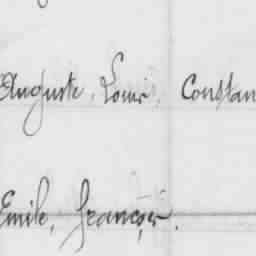 Auguste, Louis, Constan
Emile, François.